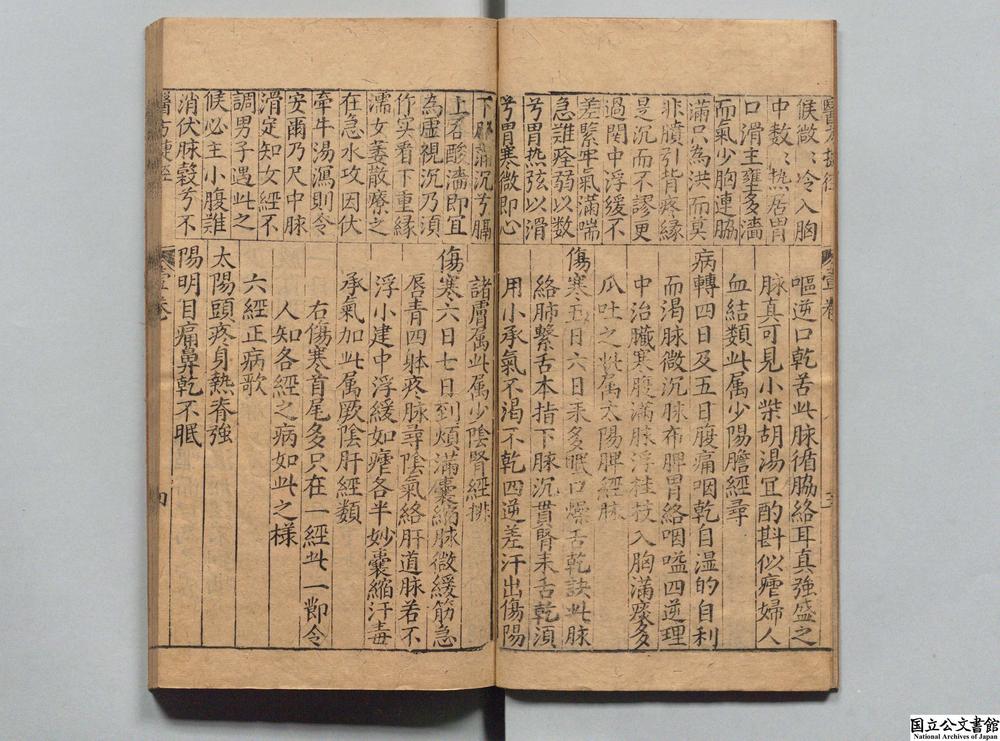 候微〻冷入胸
中数〻热居胃
口滑主壅多濇
而氣少胸連脇
滿只为洪而莫
非膹引背疼緣
是沉而不謬更
過関中浮緩不
差緊牢氣滿喘
急誰痊弱以数
兮胃热弦以滑
兮胃寒微即心
壹卷
三
嘔逆口乾苦此脉循脇絡耳真強盛之
脉真可見小柴胡湯宜酌斟似瘧婦人
血結類此属少陽膽經尋
病轉四日及五日腹痛咽乾自湿的自利
而渴脉微沉脉布脾胃絡咽嗌四逆理
中治臟寒腹滿脉浮桂枝入胸滿痰多
瓜吐之此属太陽脾經脉
傷寒五日六日来多眠口燥舌乾訣此脉
絡肺繫舌本指下脉沉貫腎来舌乾湏
用小承氣不渴不乾四逆差汗出傷陽
下脹滿沉兮膈
上吞酸濇即宜
為虚視沉乃湏
作实看下重縁
濡女萎散療之
在急水攻因伏
牽牛湯瀉則令
安爾乃尺中脉
滑定知女經不
調男子遇此之
候必主小腹難
消伏脉榖兮不
醫方捷徑
諸膚属此属少陰腎經排
傷寒六日七日到煩滿囊縮脉微緩筋急
唇青四躰疼脉尋陰氣絡肝道脉若不
浮小建中浮緩如瘧各半妙囊縮汗毒
承氣加此属厥陰肝經類
右傷寒首尾多只在一經此一鄁令
人知各經之病如此之様
六經正病歌
太陽頭疼身熱脊強
陽明目痛鼻乾不眠
壹卷
四
国立公文書館
National Archives of Japan